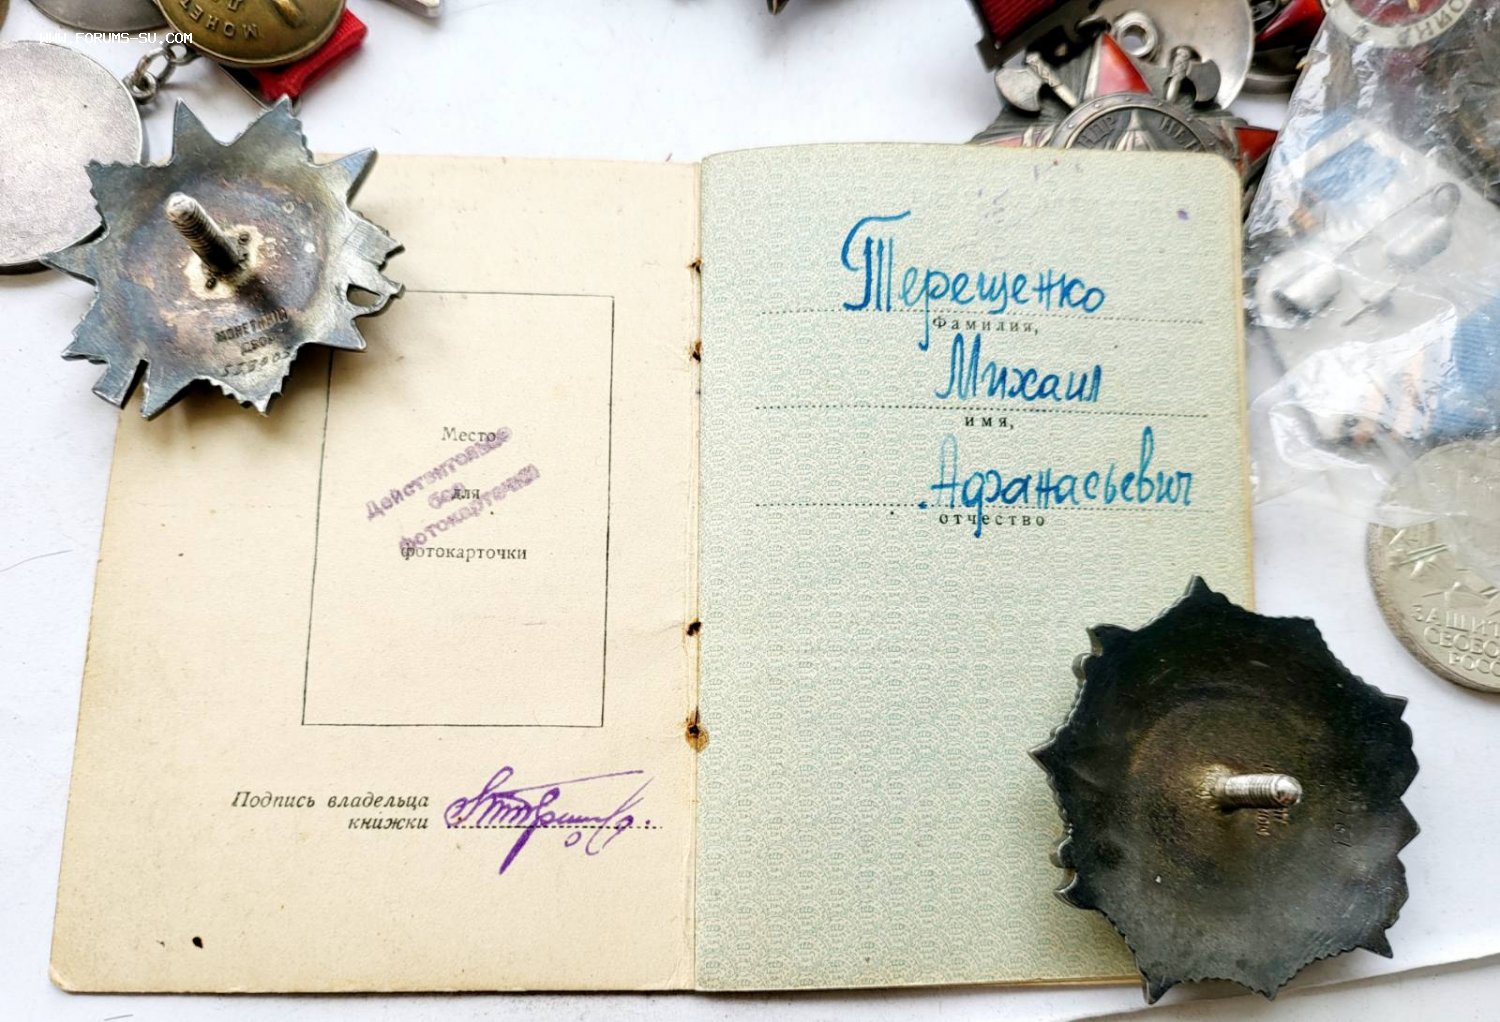 WWW.FORUMS-SU.COM
МОНЕТ
МОНЕТНЫЙ
ДВОР
Место
для
фотокарточки
Действительно
без
фотокарточки
Подпись владельца
книжки
Терещенко
Фамилия,
Михаил
имя,
Афанасьевич
отчество
ЗАЩИТ
СВОБО
РОСС